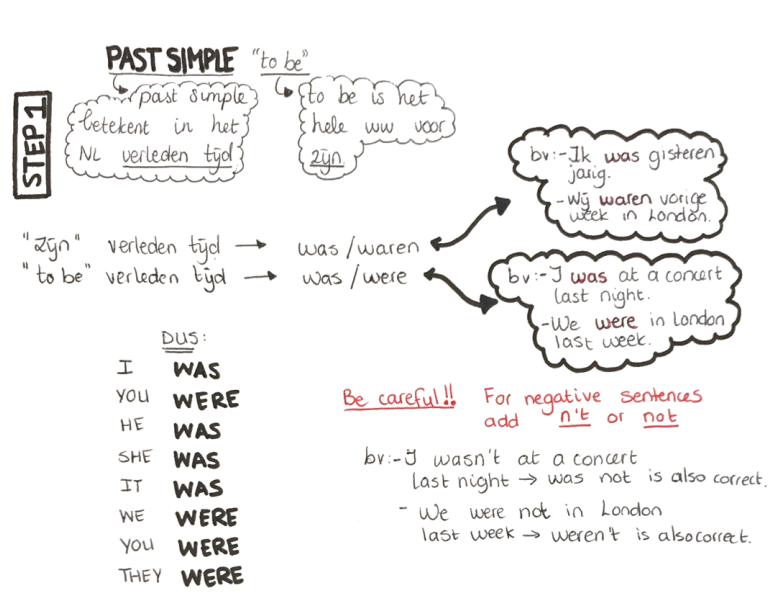 PAST SIMPLE "to be"
STEP 1
past simple
betekent in het
NL verleden tijd
to be is het
hele ww voor
zijn.
bv:-Ik was gisteren
jarig.
-Wij waren vorige
week in London.
"zijn" verleden tijd → was/waren
"to be" verleden tijd → was/were
bv:-I was at a concert
last night.
-We were in London
last week.
DUS:
I WAS
YOU WERE
HE WAS
SHE WAS
IT WAS
WE WERE
YOU WERE
THEY WERE
Be careful!! For negative sentences
add n't or not
bv:-I wasn't at a concert
last night → was not is also correct.
- We were not in London
last week → weren't is also correct.